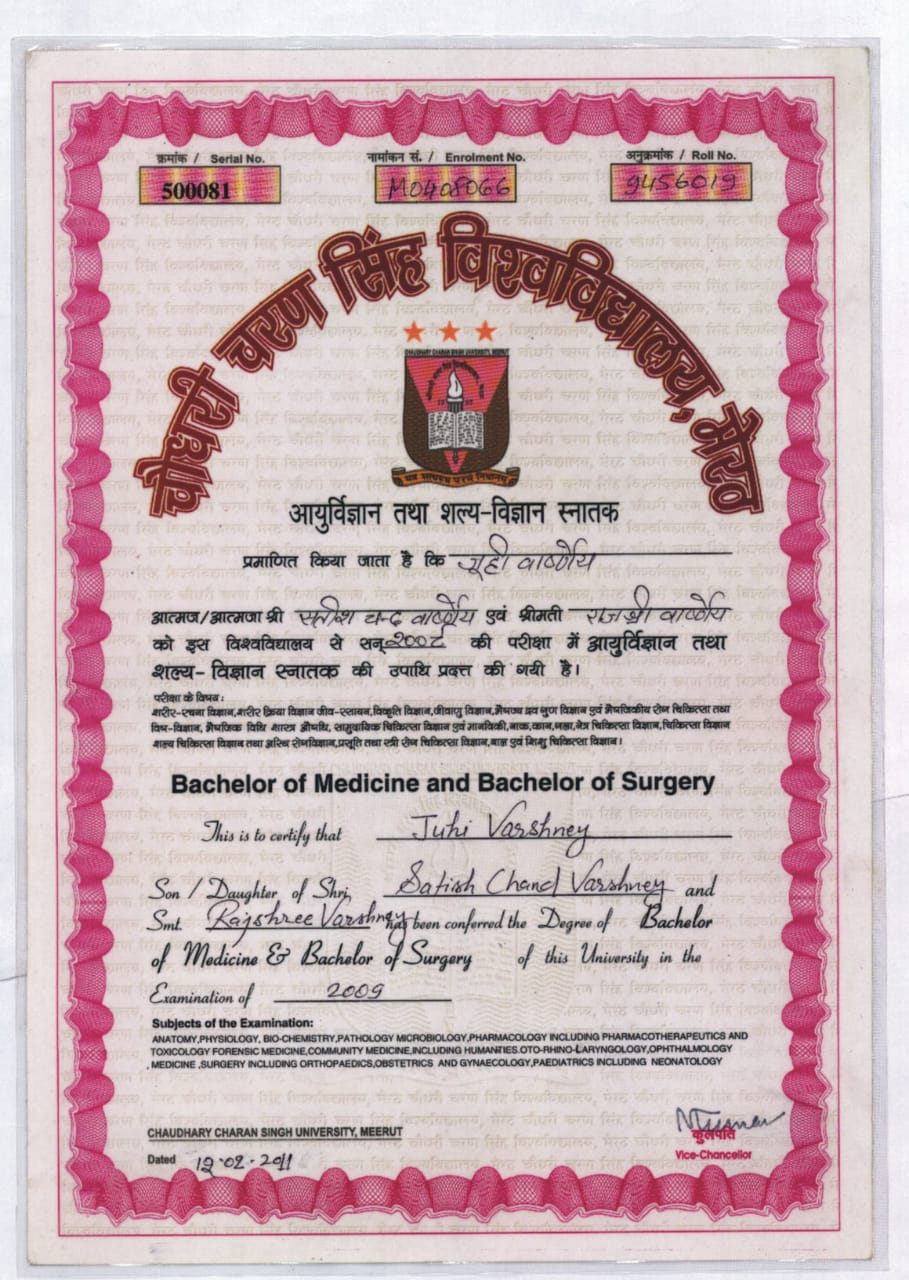 क्रमांक / Serial No. नामांकन सं. / Enrolment No. अनुक्रमांक / Roll No.
500081 M0408066 9456019
चौधरी चरण सिंह विश्वविद्यालय, मेरठ
CHAUDHARY CHARAN SINGH UNIVERSITY, MEERUT
आयुर्विज्ञान तथा शल्य-विज्ञान स्नातक
प्रमाणित किया जाता है कि जूही वार्ष्णेय
आत्मज/आत्मजा श्री सतीश चन्द वार्ष्णेय एवं श्रीमती राजश्री वार्ष्णेय
को इस विश्वविद्यालय से सन् की परीक्षा में आयुर्विज्ञान तथा
शल्य- विज्ञान स्नातक की उपाधि प्रदत्त की गयी है।
परीक्षा के विषय :
शरीर-रचना विज्ञान,शरीर क्रिया विज्ञान जीव-रसायन,विकृति विज्ञान,जीवाणु विज्ञान,भैषज्य द्रव्य गुण विज्ञान एवं भैषजिकीय रोग चिकित्सा तथा
विष-विज्ञान, भैषजिक विधि शास्त्र औषधि, सामुदायिक चिकित्सा विज्ञान एवं मानविकी,नाक,कान,गला,नेत्र चिकित्सा विज्ञान,चिकित्सा विज्ञान
शल्य चिकित्सा विज्ञान तथा अस्थि रोगविज्ञान,प्रसूति तथा स्त्री रोग चिकित्सा विज्ञान,बाल एवं शिशु चिकित्सा विज्ञान।
Bachelor of Medicine and Bachelor of Surgery
This is to certify that Juhi Varshney
Son / Daughter of Shri Satish Chand Varshney and
Smt. Rajshree Varshney has been conferred the Degree of Bachelor
of Medicine & Bachelor of Surgery of this University in the
Examination of 2009
Subjects of the Examination:
ANATOMY,PHYSIOLOGY, BIO-CHEMISTRY,PATHOLOGY MICROBIOLOGY,PHARMACOLOGY INCLUDING PHARMACOTHERAPEUTICS AND
TOXICOLOGY FORENSIC MEDICINE,COMMUNITY MEDICINE,INCLUDING HUMANTIES.OTO-RHINO-LARYNGOLOGY,OPHTHALMOLOGY
, MEDICINE ,SURGERY INCLUDING ORTHOPAEDICS,OBSTETRICS AND GYNAECOLOGY,PAEDIATRICS INCLUDING NEONATOLOGY
CHAUDHARY CHARAN SINGH UNIVERSITY, MEERUT
कुलपति
Dated 12.02.2011 Vice-Chancellor